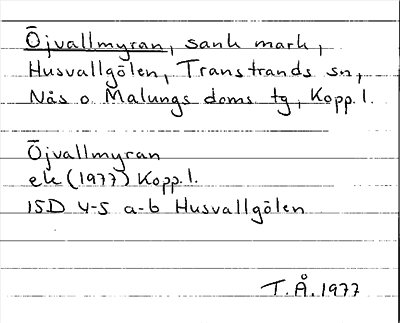 Öjvallmyran, sank mark,
Husvallgölen, Transtrands sn,
Nås o Malungs doms tg, Kopp.l.
Öjvallmyran
ek (1977) Kopp.l.
15D 4-5 a-b Husvallgölen
T.Å. 1977